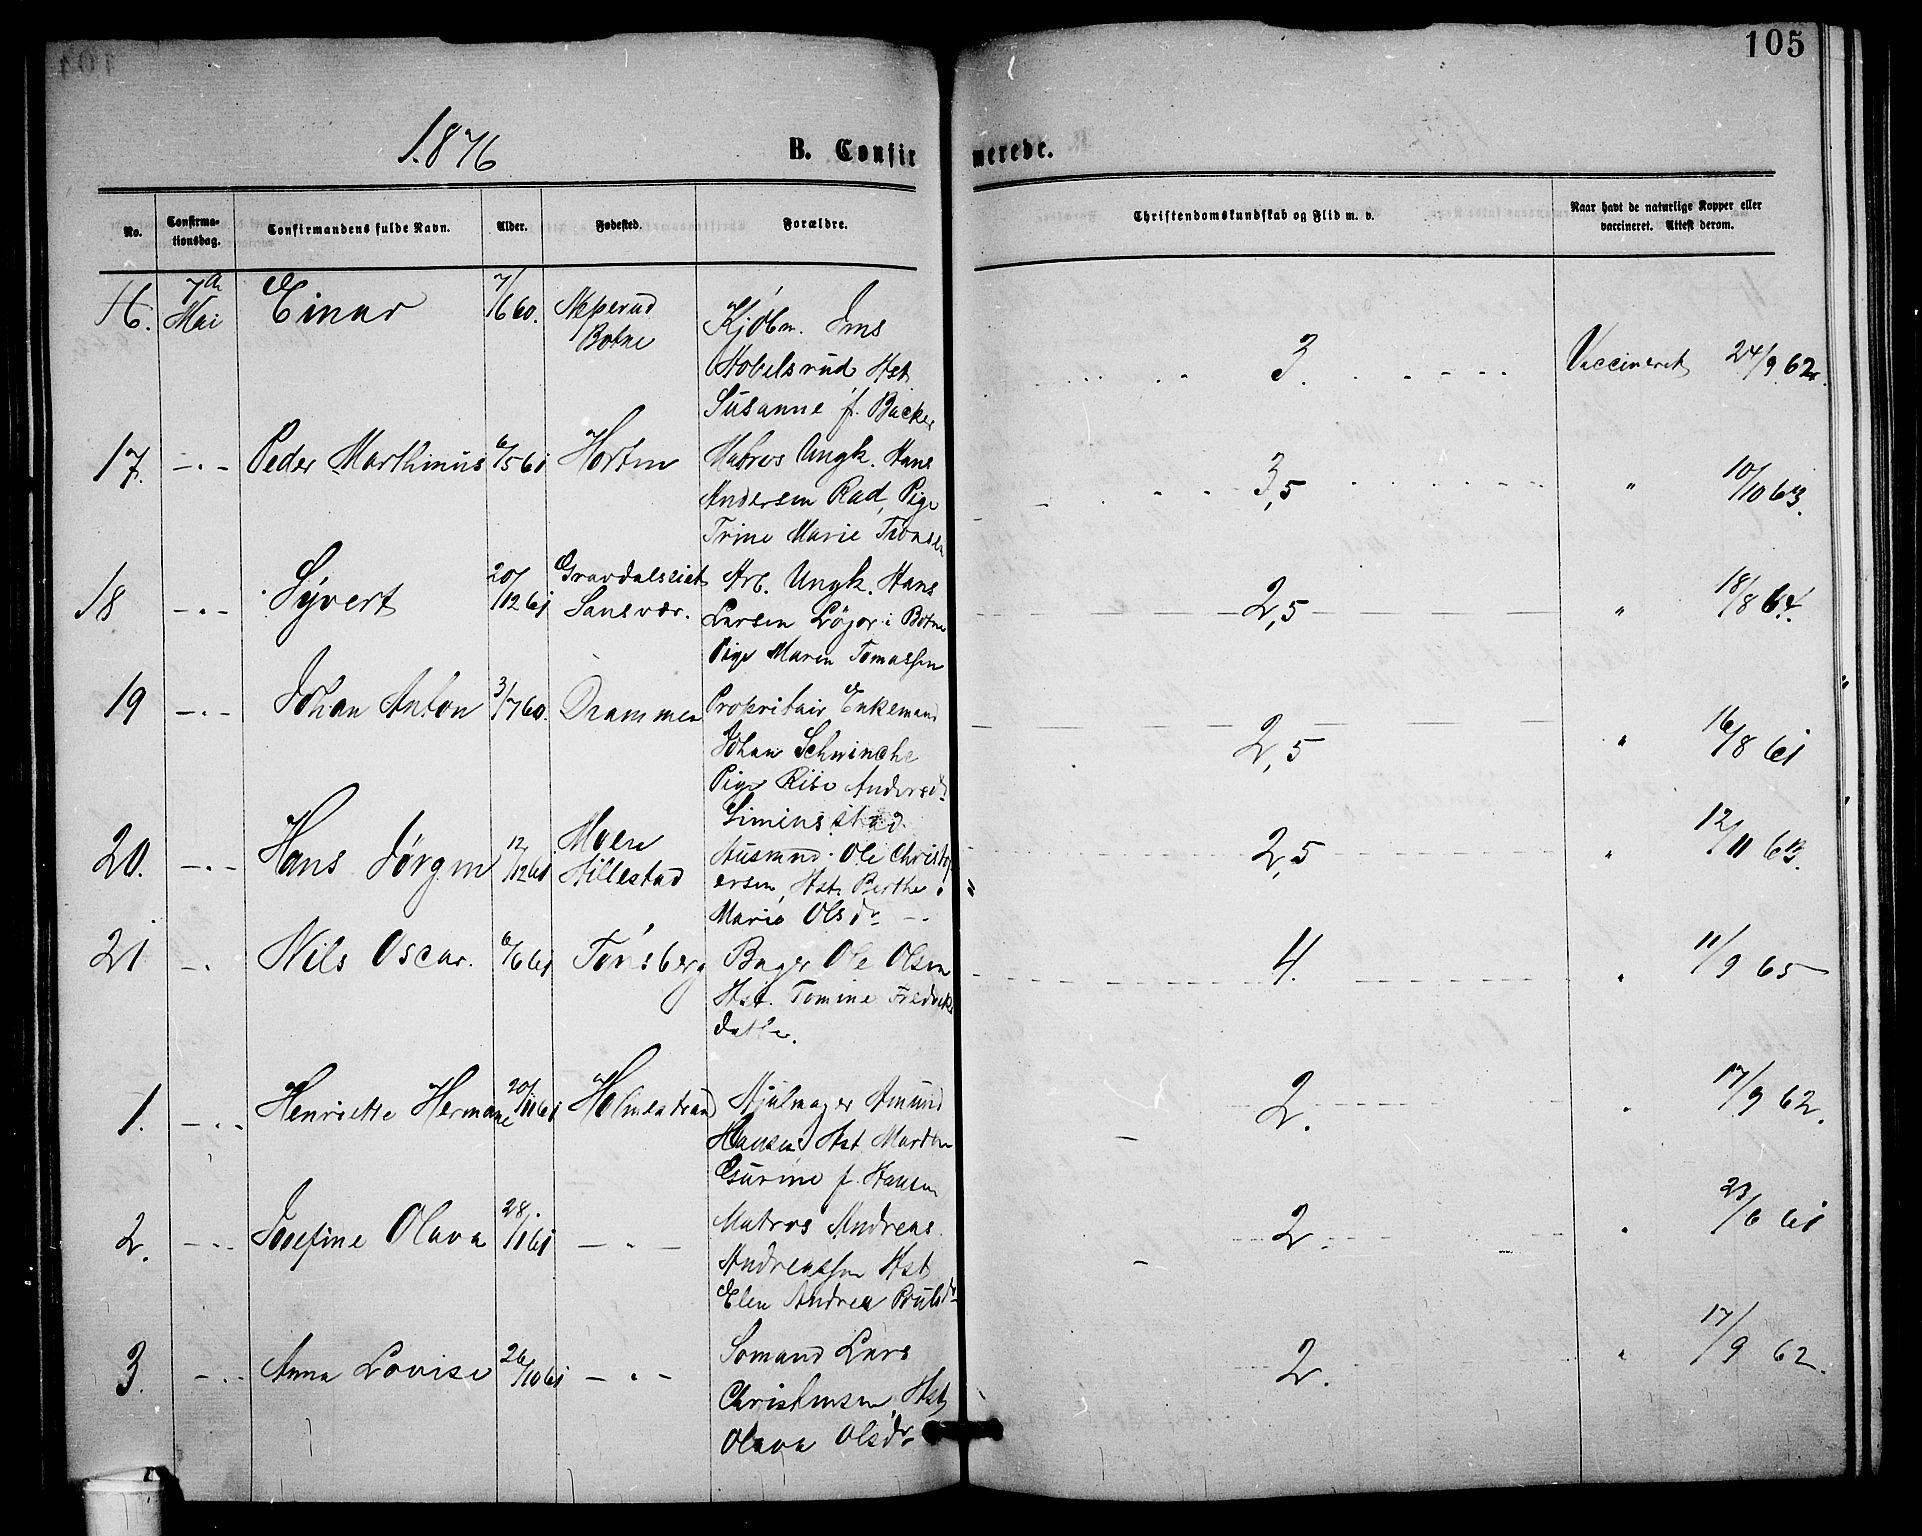 105
1876
B. Confirmerede.
No.
Confirmationsdag.
Confirmandens fulde Navn.
Alder.
Fødested.
Forældre.
Christendomskundskab og Flid m. v.
Naar havt de naturlige Kopper eller vaccineret. Attest derom.
16. 7de Mai Einar 7/6 60. Botne
Kjøbm. Jens
Hobelsrud Hst
Susanne f. Backer
3. Vaccineret 24/9 62.
17. - " - Peder Marthinus 6/5 61 Horten
Matros Ungk. Hans
Andersen Rad, Pige
Trine Marie
3,5 " 10/10 63.
18 - " - Syvert 20/12 61 Gravdalseiet
Sansvær.
Arb. Ungk. Hans
Larsen Løjer i Botne
Pige Maren Tomassen
2,5 " 18/8 64.
19 - " - Johan Anton 3/7 60. Drammen
Propritair Enkemand
Johan Schwincke
Pige Andersdr
Simenstad
2,5 " 16/8 61
20. - " - Hans Jørgen 12/12 61 Moen
Hillestad
Husmand Ole Christof
ersen, Hst Berthe
Marie Olsdr
2,5 " 12/11 63.
21 - " Nils Oscar. 6/6 61 Tønsberg
Bager Ole Olsen
Hst. Tomine Fredriks
datter.
4. " 11/9 65
1. - " - Henriette Hermane 20/11 61 Holmestrand
Hjulmager Amund
Hansen, Hst Marthe
Gurine f. Hansen
2. " 17/9 62.
2. - " - Josefine Olava 28/1 61 - " -
Matros Andreas
Andreassen Hst
Elen Andrea Poulsdr
2. " 23/6 61
3. - " - Anna Lovise 26/10 61 - " -
Sømand Lars
Christensen, Hst
Olava Olsdr
2. " 17/9 62.